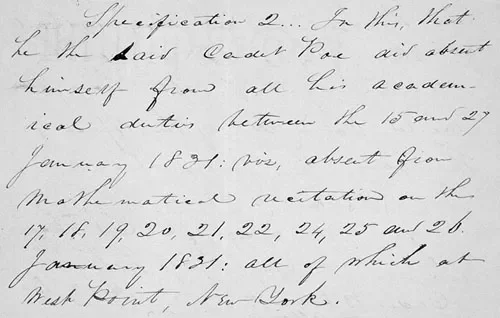 Specification 2... In this, that
he the said Cadet Poe did absent
himself from all his academ-
ical duties between the 15 and 27
January 1831: viz, absent from
Mathematical recitation on the
17, 18, 19, 20, 21, 22, 24, 25 and 26.
January 1831: all of which at
West Point, New York.